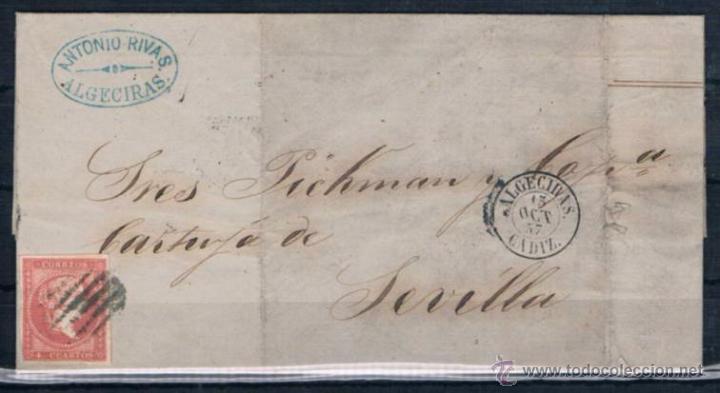 ANTONIO RIVAS.
ALGECIRAS.
Sres Pickman y Compª
Cartuja de
Sevilla
ALGECIRAS.
13
OCT
57
CADIZ.
CORREOS
4 CUARTOS
www.todocoleccion.net